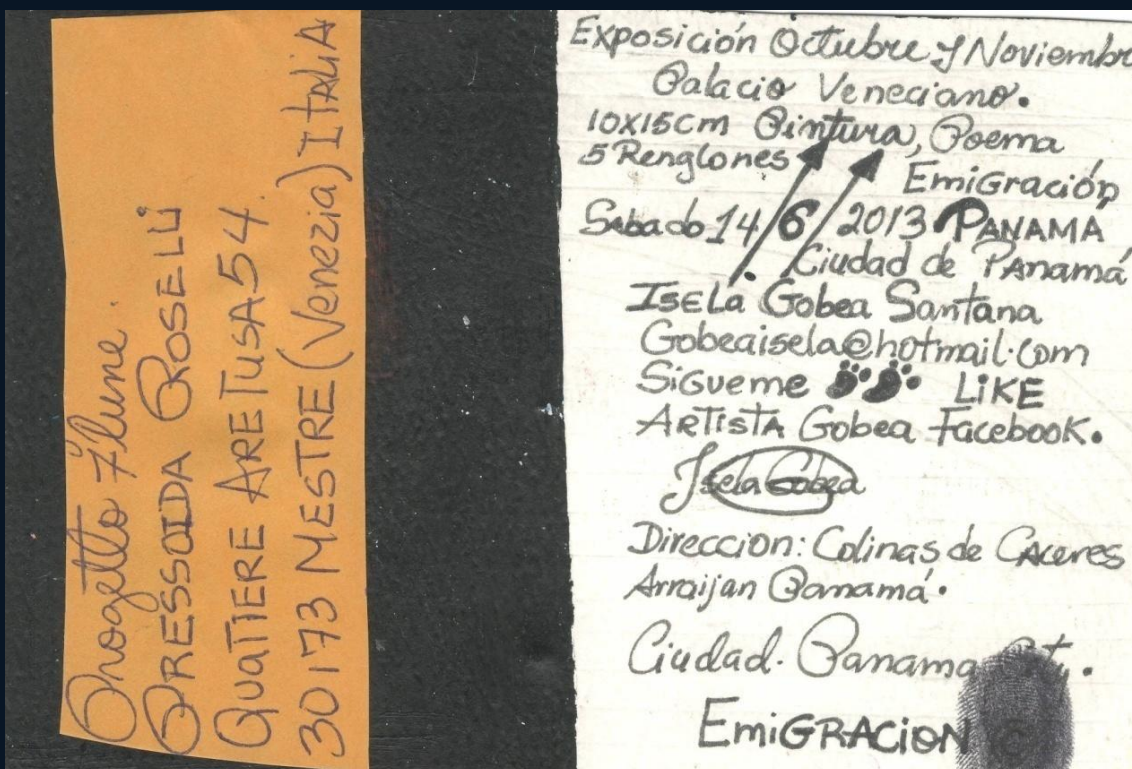 Progetto Flume.
PRESSOIDA ROSELLI
QUATIERE ARETUSA 54.
30173 MESTRE (Venezia) ITALIA
Exposición Octubre y Noviembre
Palacio Veneciano.
10x15cm Pintura, Poema
5 Renglones
Emigración
Sabado 14/6/2013 PANAMÁ
Ciudad de Panamá
Isela Gobea Santana
Gobeaisela@hotmail.com
Sigueme LIKE
Artista Gobea Facebook.
Isela Gobea
Direccion: Colinas de Caceres
Arraijan Panamá.
Ciudad. Panama
EmiGRACION ©